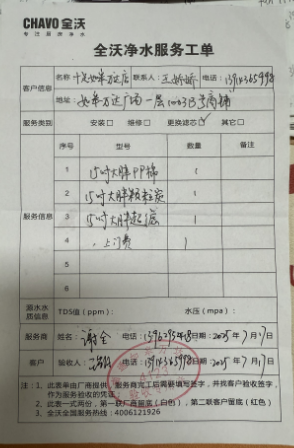 CHAVO全沃
专注最源净水
全沃净水服务工单
客户信息
名称: 如皋万达店 联系人: 电话:
地址: 如皋万达广场一层1003B号商铺
服务类别 安装□ 维修□ 更换滤芯☑ 其它□
服务信息
序号 型号 数量 备注
1 15吋大胖PP棉 1
2 15吋大胖颗粒炭 1
3 15吋大胖超滤 1
4 上门费 1
5
6
源水水质信息 TDS值(ppm): 水压(mpa):
服务商 姓名: 谢全 电话: 日期: 2025年7月17日
客户 验收人: 电话: 日期: 2025年7月17日
注:1、此表单由厂商提供,服务商完工后需要填写签字,并找客户验收签字,
作为服务验收的凭证
2、此表一式两份,第一联厂商留底(白色),第二联客户留底(红色)
3、全沃全国服务热线:4006121926